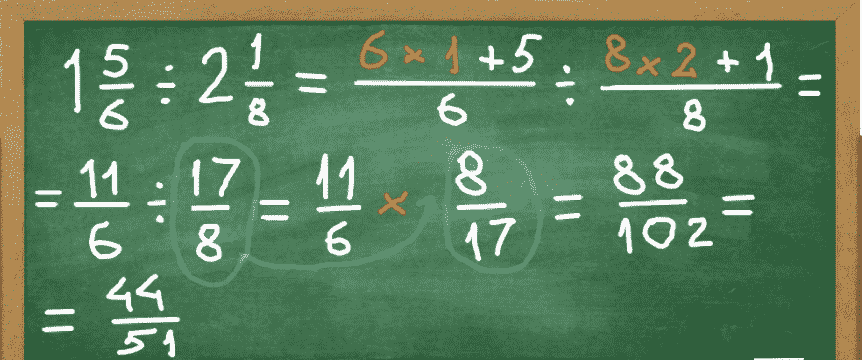 1 5/6 ÷ 2 1/8 = (6 × 1 + 5)/6 ÷ (8 × 2 + 1)/8 =
= 11/6 ÷ 17/8 = 11/6 × 8/17 = 88/102 =
= 44/51